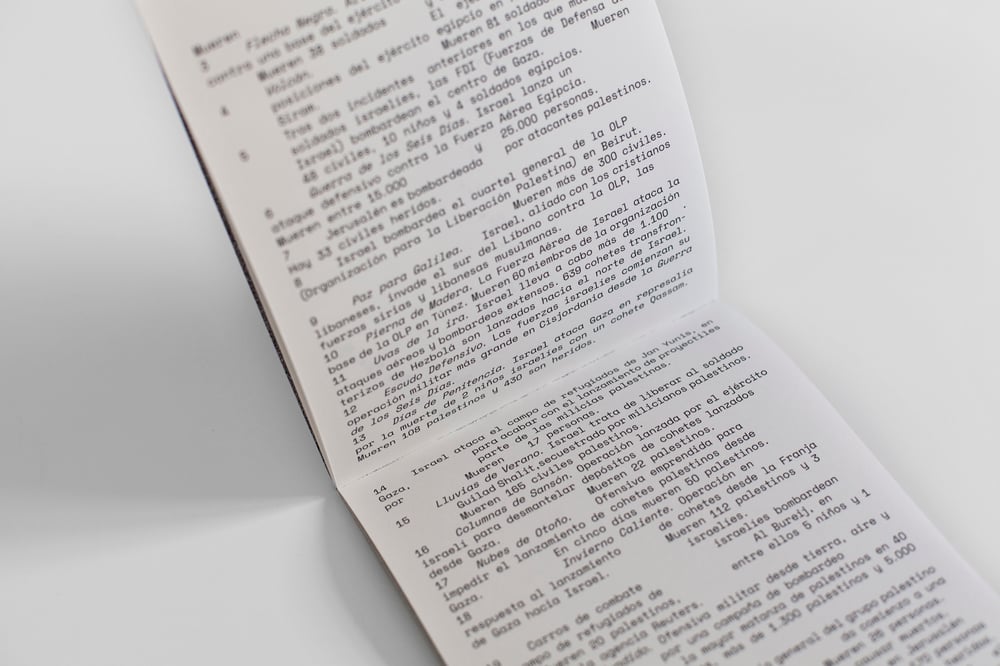 Mueren
3 Flecha Negra.
contra una base del ejército
Mueren 38 soldados
4 Volcán. El
posiciones del ejército egipcio en
Siram. Mueren 81 soldados
Tras dos incidentes anteriores en los que
soldados israelíes, las FDI (Fuerzas de Defensa Mueren
Israel) bombardean el centro de Gaza.
48 civiles, 10 niños y 4 soldados egipcios.
5 Guerra de los Seis Días. Israel lanza un
ataque defensivo contra la Fuerza Aérea Egipcia.
Mueren entre 15.000 y 25.000 personas.
6 Jerusalén es bombardeada por atacantes palestinos.
Hay 33 civiles heridos.
7 Israel bombardea el cuartel general de la OLP
(Organización para la Liberación Palestina) en Beirut.
Mueren más de 300 civiles.
8 Paz para Galilea. Israel, aliado con los cristianos
libaneses, invade el sur del Líbano contra la OLP, las
fuerzas sirias y libanesas musulmanas.
9 Pierna de Madera. La Fuerza Aérea de Israel ataca la
base de la OLP en Túnez. Mueren 60 miembros de la organización
10 Uvas de la ira. Israel lleva a cabo más de 1.100
ataques aéreos y bombardeos extensos. 639 cohetes transfron-
terizos de Hezbolá son lanzados hacia el norte de Israel.
11 Escudo Defensivo. Las fuerzas israelíes comienzan su
operación militar más grande en Cisjordania desde la Guerra
de los Seis Días.
12 Días de Penitencia. Israel ataca Gaza en represalia
por la muerte de 2 niños israelíes con un cohete Qassam.
13 Mueren 108 palestinos y 430 son heridos.
14 Israel ataca el campo de refugiados de Jan Yunis, en
Gaza, para acabar con el lanzamiento de proyectiles
por parte de las milicias palestinas.
Mueren 17 personas.
15 Lluvias de Verano. Israel trata de liberar al soldado
Guilad Shalit, secuestrado por milicianos palestinos.
Mueren 165 civiles palestinos.
16 Columnas de Sansón. Operación lanzada por el ejército
israelí para desmantelar depósitos de cohetes lanzados
desde Gaza. Mueren 22 palestinos.
17 Nubes de Otoño. Ofensiva emprendida para
impedir el lanzamiento de cohetes palestinos desde
Gaza. En cinco días mueren 50 palestinos.
18 Invierno Caliente. Operación en
respuesta al lanzamiento de cohetes desde la Franja
de Gaza hacia Israel. Mueren 112 palestinos y 3
israelíes.
Carros de combate israelíes bombardean
campo de refugiados de Al Bureij, en
Mueren 20 palestinos, entre ellos 5 niños y 1
la agencia Reuters.
Ofensiva militar desde tierra, aire y
por una campaña de bombardeo
la mayor matanza de palestinos en 40
más de 1.300 palestinos y 5.000
general del grupo palestino
da comienzo a una
Mueren 28 personas.
muertos.
Jerusalén
personas